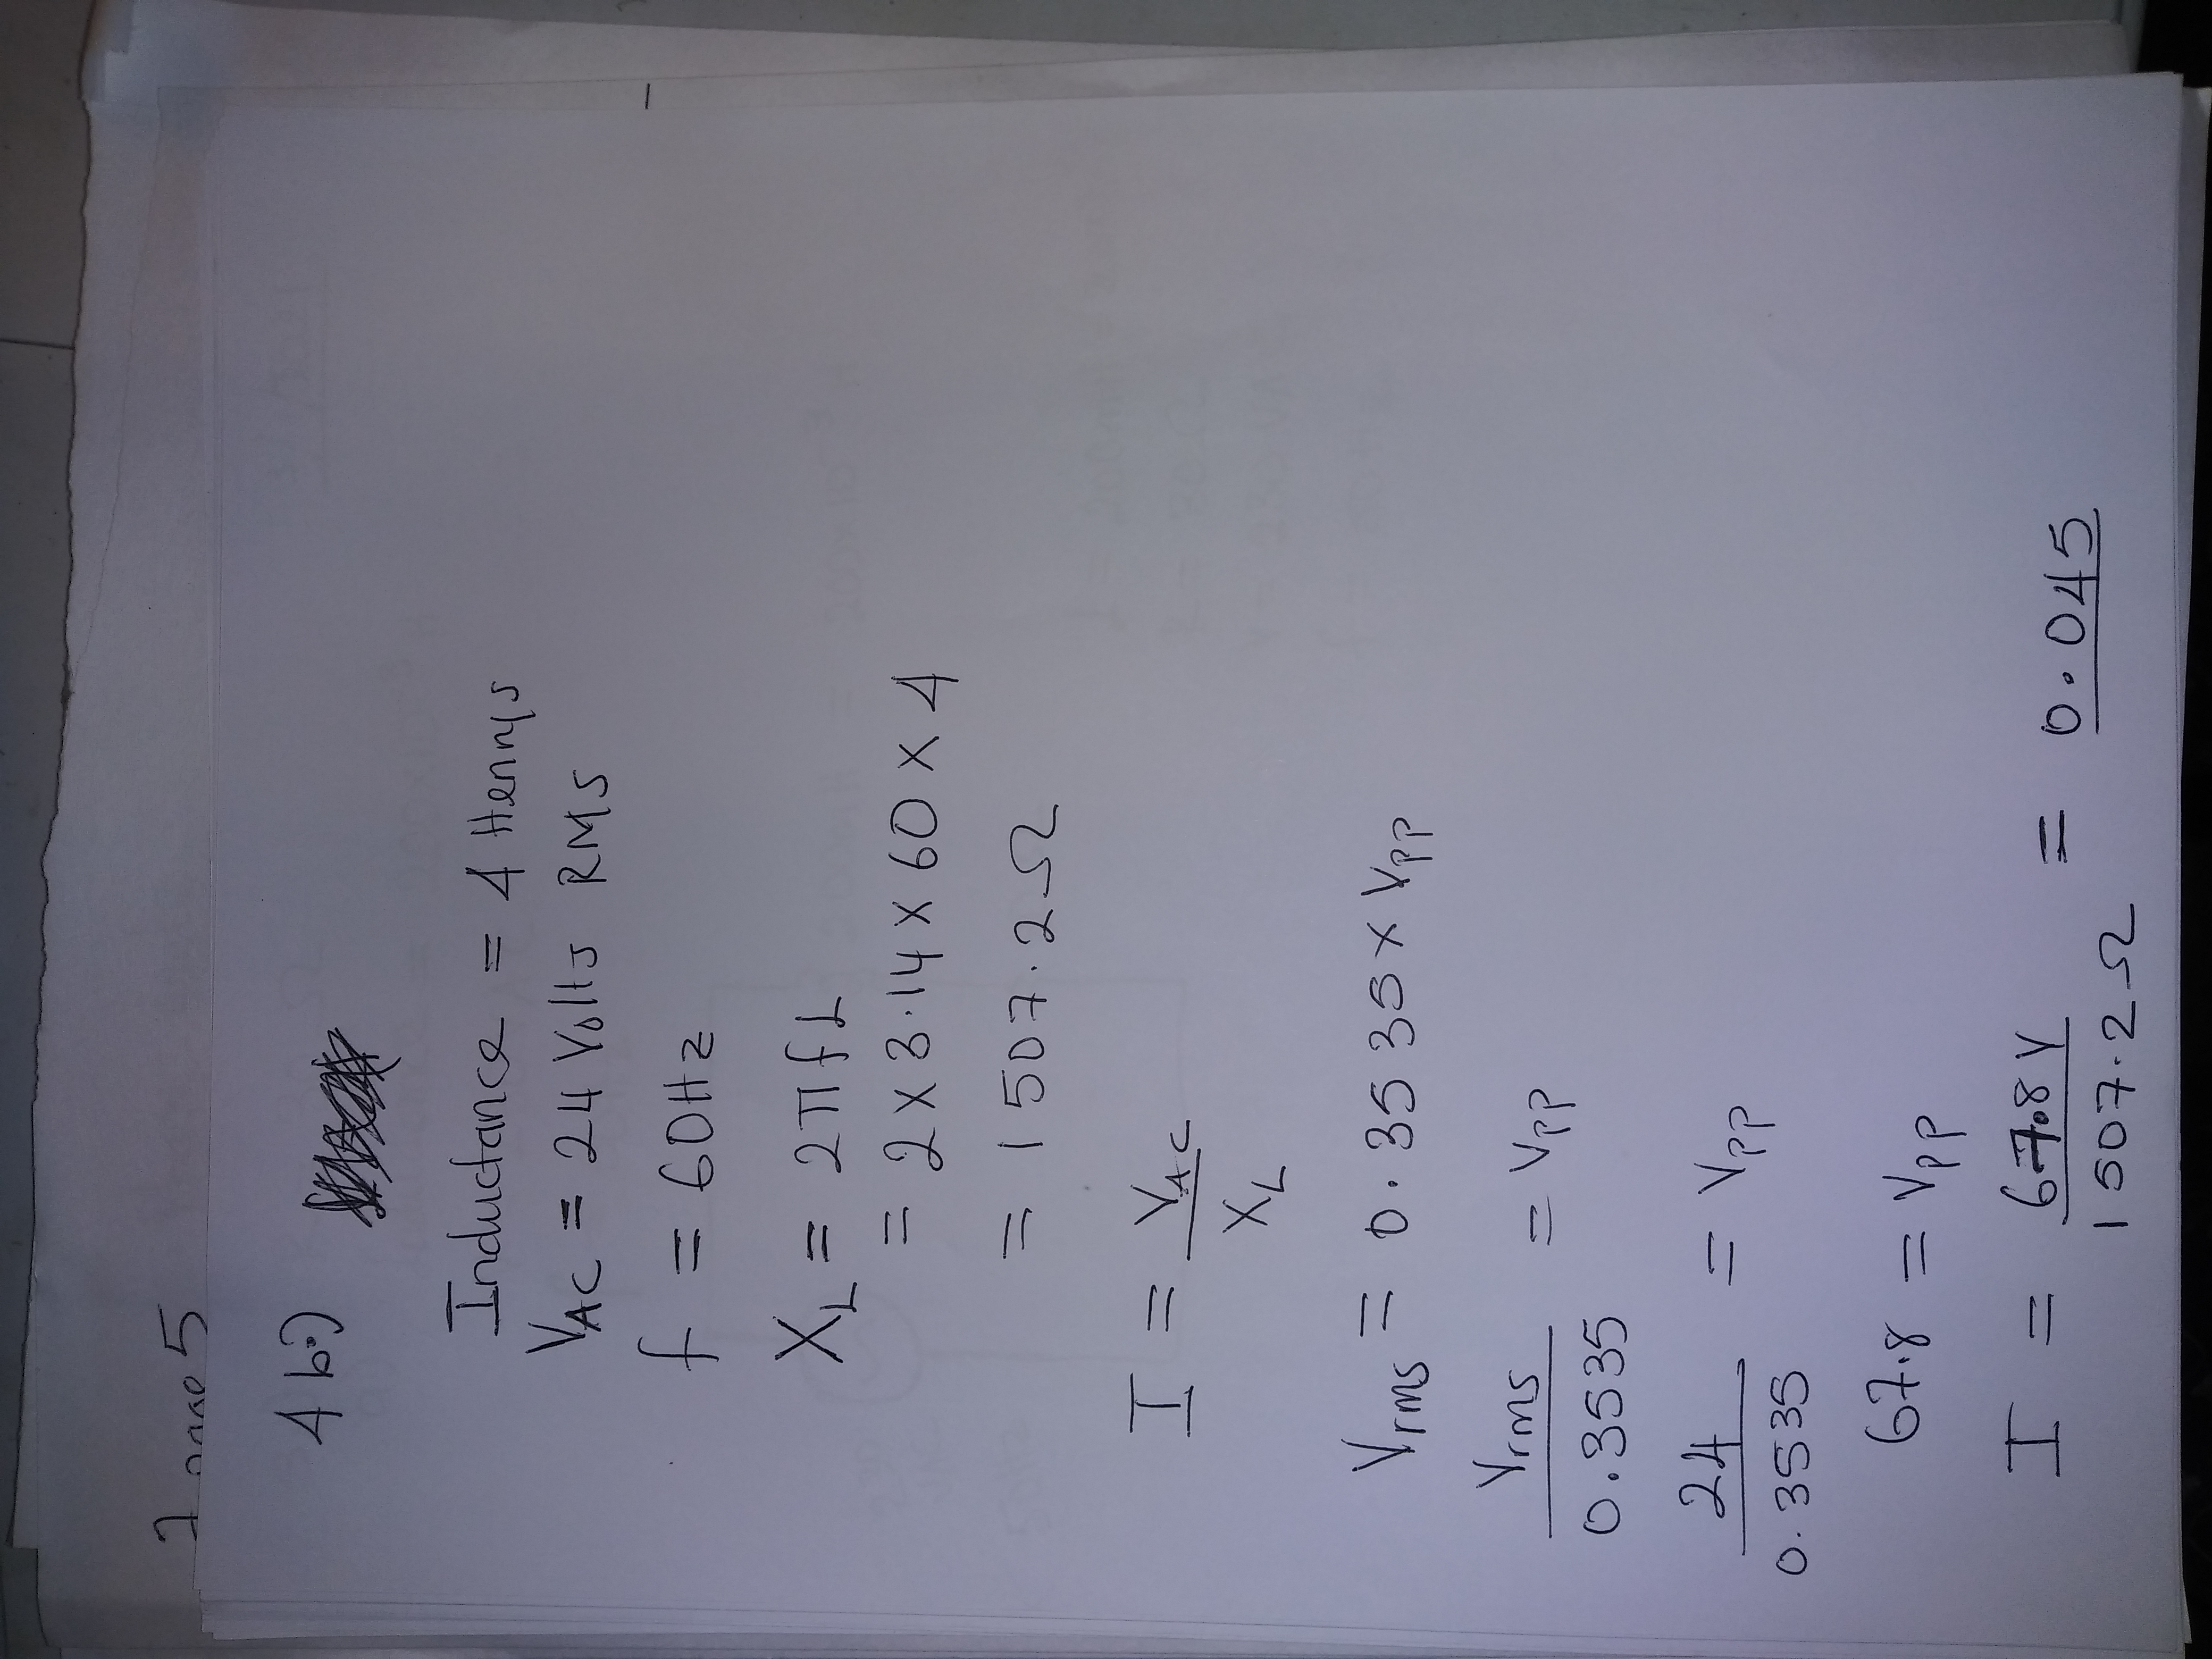 page 5
4 b.)
Inductance = 4 Henrys
VAC = 24 Volts RMS
f = 60Hz
XL = 2πfL
= 2 x 3.14 x 60 x 4
= 1507.2Ω
I = VAC
XL
Vrms = 0.3535 x Vpp
Vrms = Vpp
0.3535
24 = Vpp
0.3535
67.8 = Vpp
I = 67.8V = 0.045
1507.2Ω